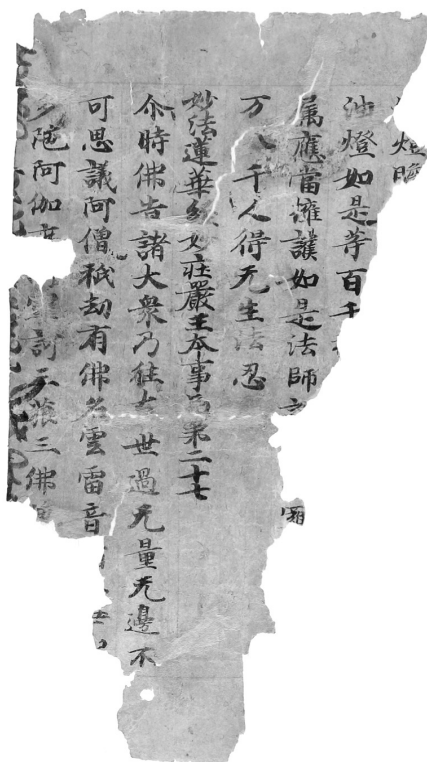 燈瞻
油燈如是等百千
属應當擁護如是法師
万八千人得无生法忍
妙法蓮華經妙莊嚴王本事品第二十七
尒時佛告諸大衆乃往古世過无量无邊不
可思議阿僧祇劫有佛名雲雷音
多陁阿伽 訶三藐三佛